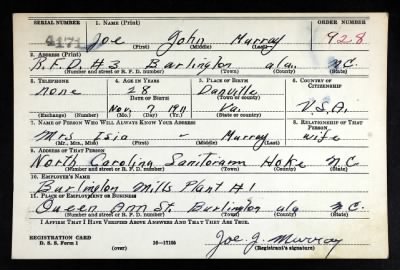 SERIAL NUMBER 1. NAME (Print) ORDER NUMBER
4171 Joe John Murray 928
(First) (Middle) (Last)
2. ADDRESS (Print)
R.F.D. #3 Burlington ala. N.C.
(Number and street or R. F. D. number) (Town) (County) (State)
3. TELEPHONE 4. AGE IN YEARS 5. PLACE OF BIRTH 6. COUNTRY OF CITIZENSHIP
none 28 Danville
DATE OF BIRTH (Town or county)
Nov. 7 1911 Va. U.S.A.
(Exchange) (Number) (Mo.) (Day) (Yr.) (State or country)
7. NAME OF PERSON WHO WILL ALWAYS KNOW YOUR ADDRESS 8. RELATIONSHIP OF THAT PERSON
Mrs Isia - Murray wife
(Mr., Mrs., Miss) (First) (Middle) (Last)
9. ADDRESS OF THAT PERSON
North Carolina Sanitorium Hoke NC
(Number and street or R. F. D. number) (Town) (County) (State)
10. EMPLOYER'S NAME
Burlington Mills Plant #1
11. PLACE OF EMPLOYMENT OR BUSINESS
Queen Ann St. Burlington ala N.C.
(Number and street or R. F. D. number) (Town) (County) (State)
I AFFIRM THAT I HAVE VERIFIED ABOVE ANSWERS AND THAT THEY ARE TRUE.
REGISTRATION CARD
D. S. S. Form 1 (over) 16-17105 Joe J. Murray
(Registrant's signature)